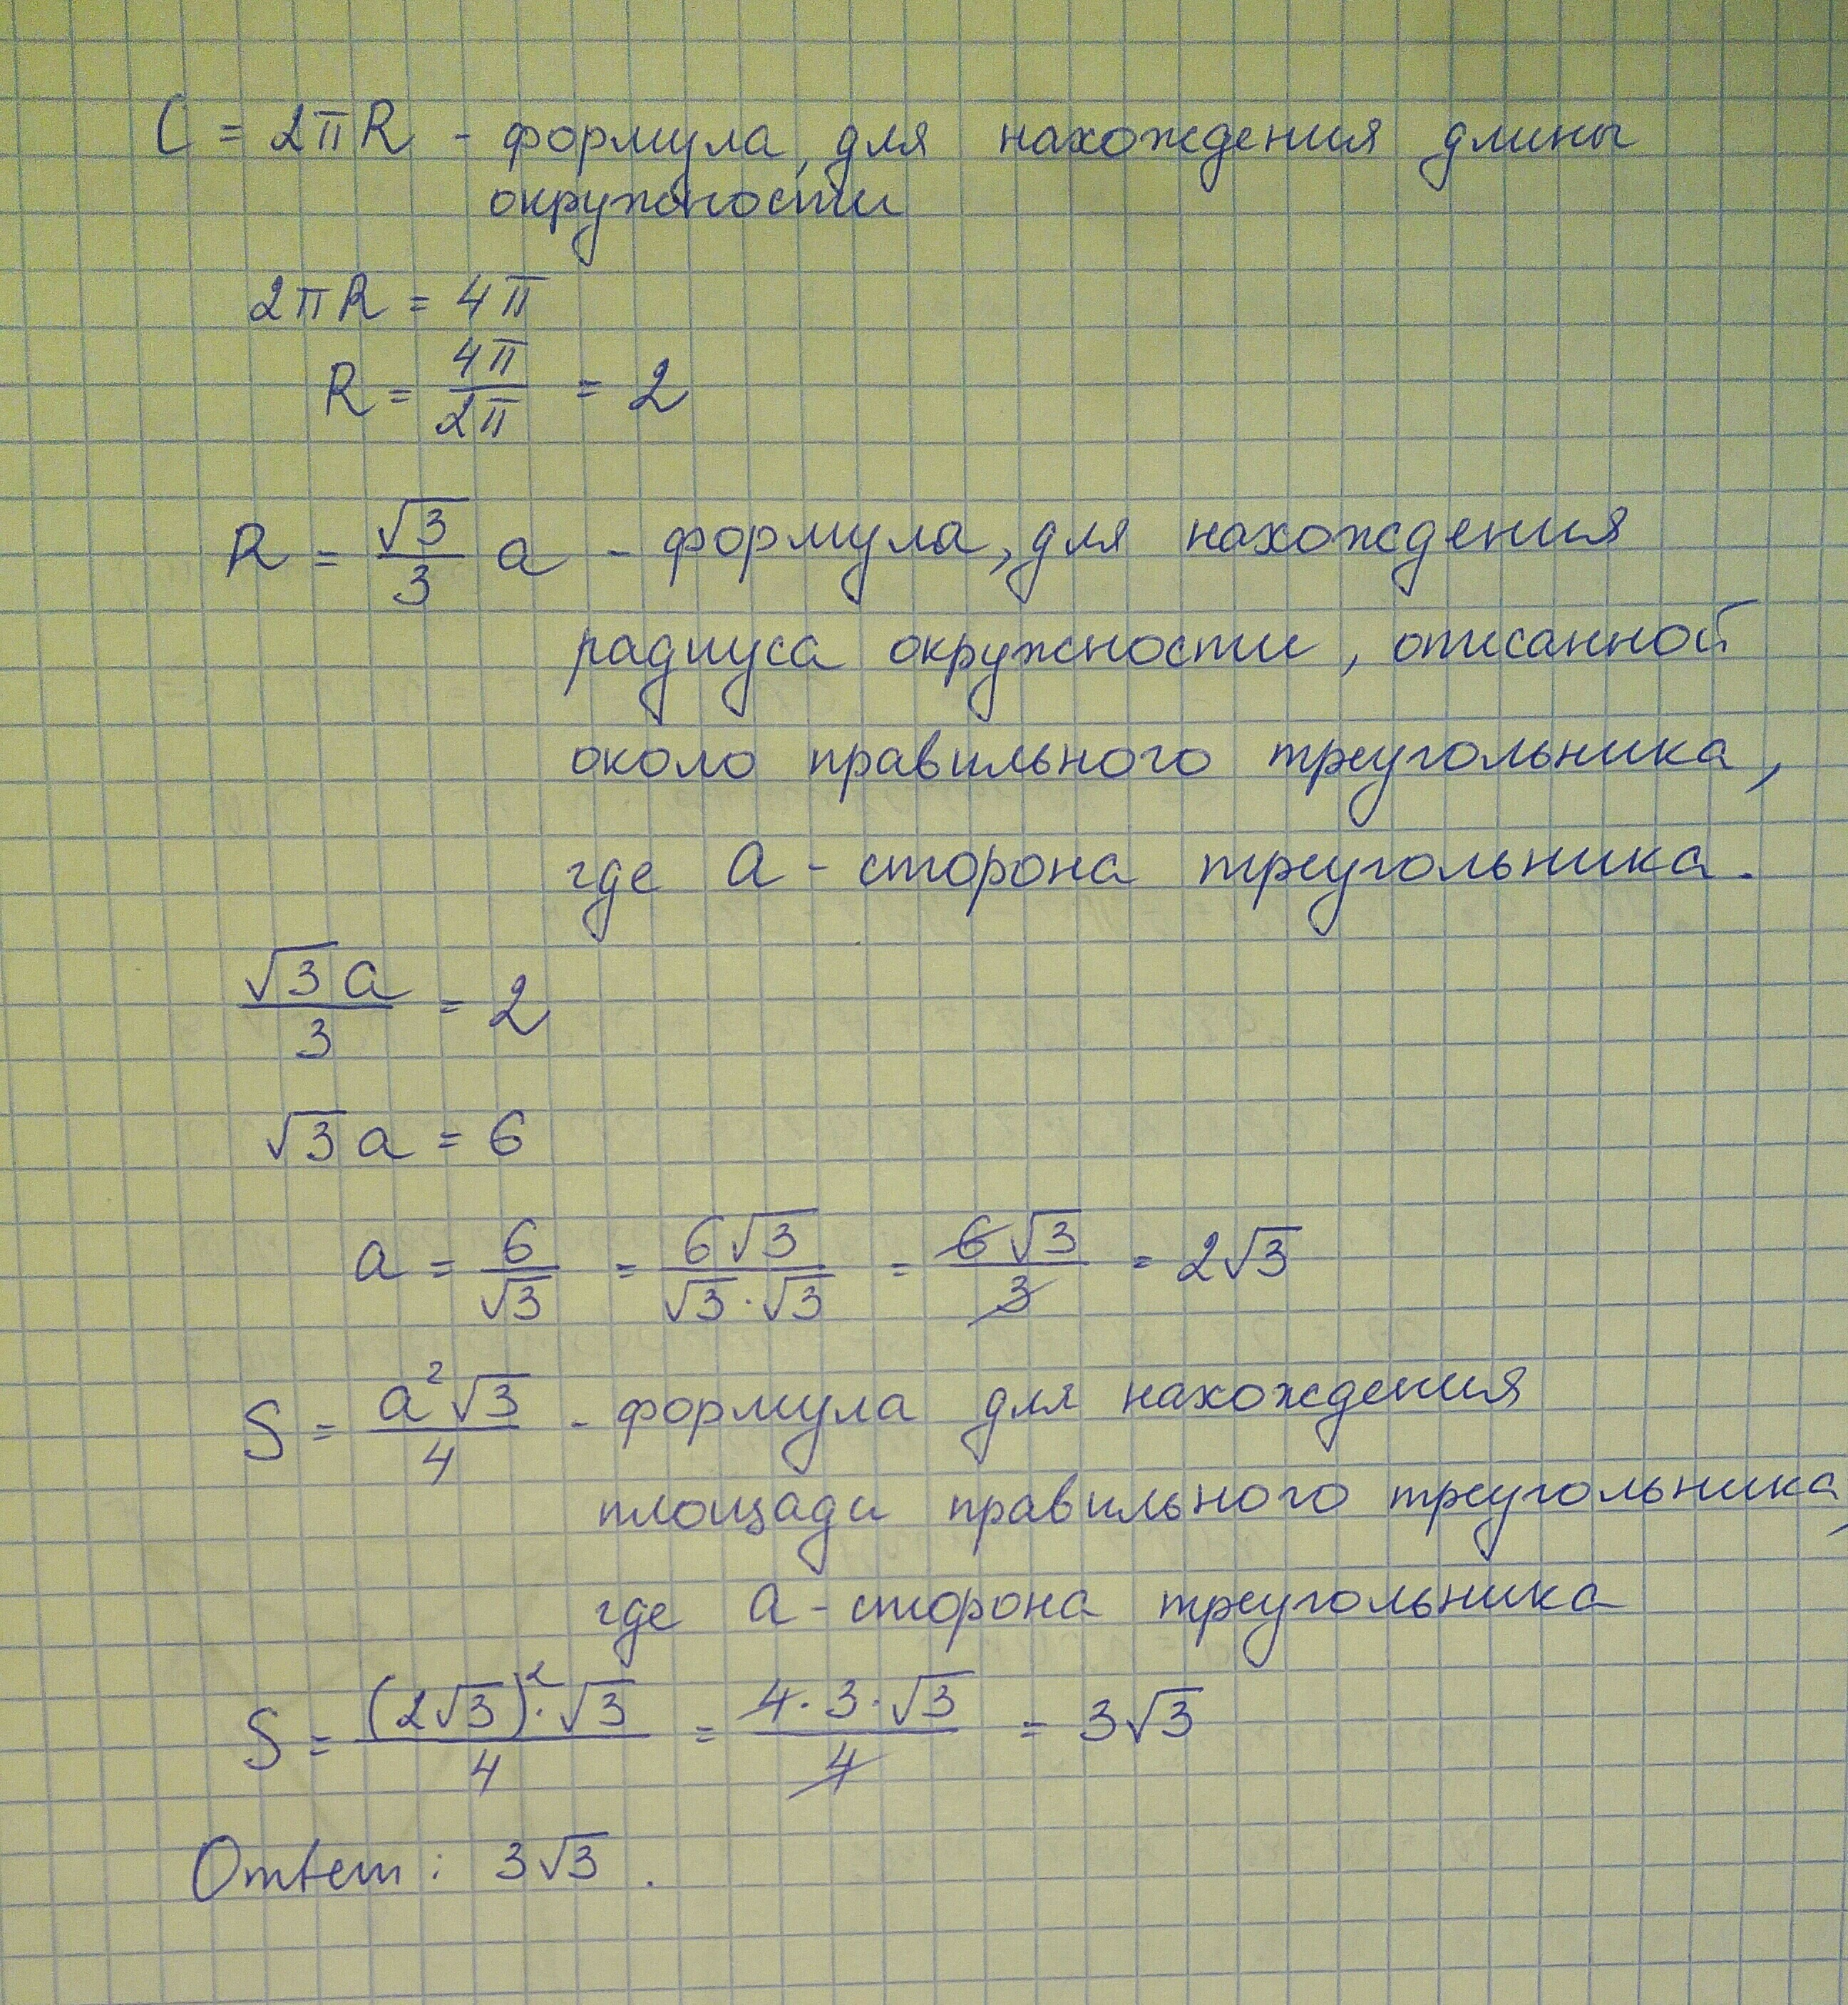 C = 2πR - формула, для нахождения длины
окружности
2πR = 4π
R = 4π/2π = 2
R = √3/3 a - формула, для нахождения
радиуса окружности, описанной
около правильного треугольника,
где a - сторона треугольника.
√3a/3 = 2
√3a = 6
a = 6/√3 = 6√3/√3·√3 = 6√3/3 = 2√3
S = a²√3/4 - формула для нахождения
площади правильного треугольника,
где a - сторона треугольника
S = (2√3)²·√3/4 = 4·3·√3/4 = 3√3
Ответ: 3√3.